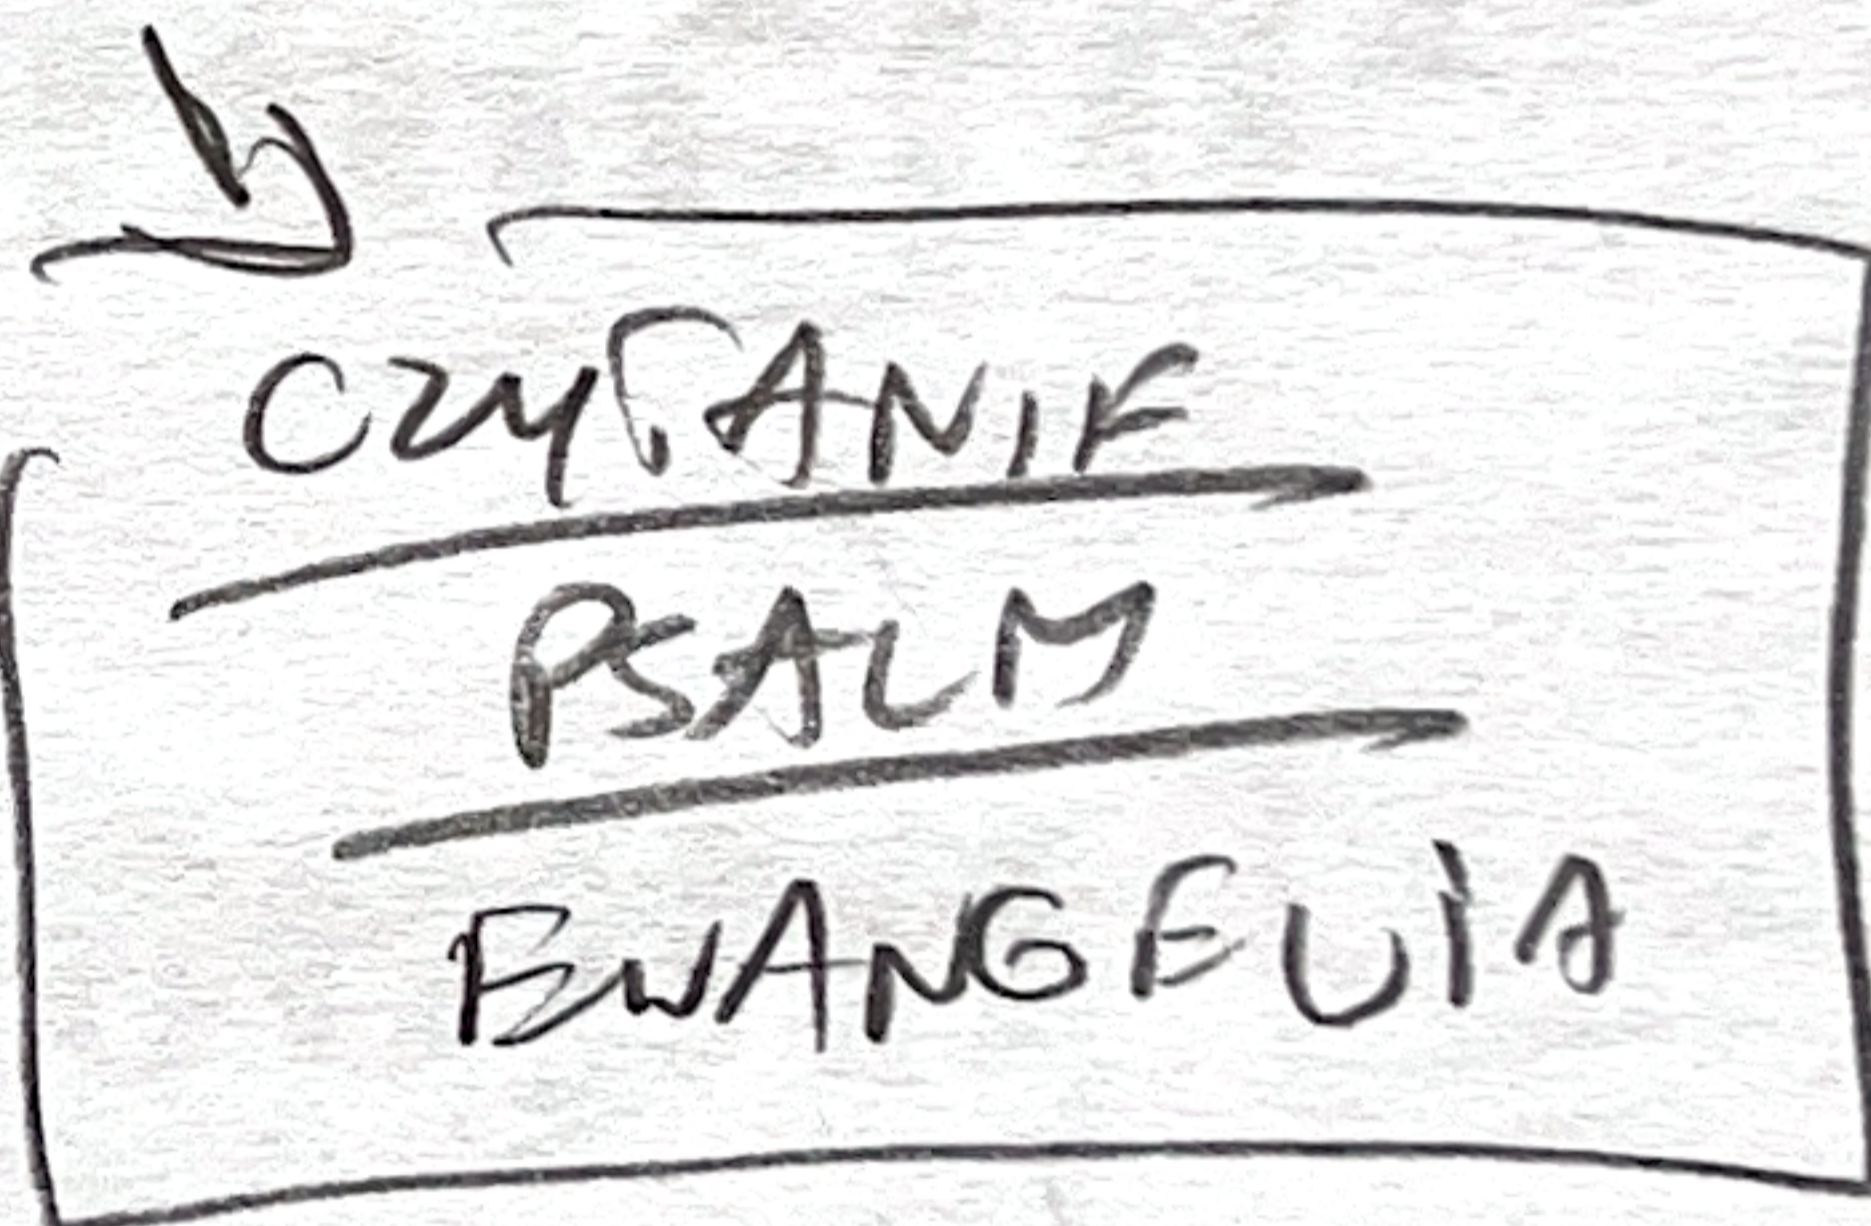 CZYTANIE
PSALM
EWANGELIA